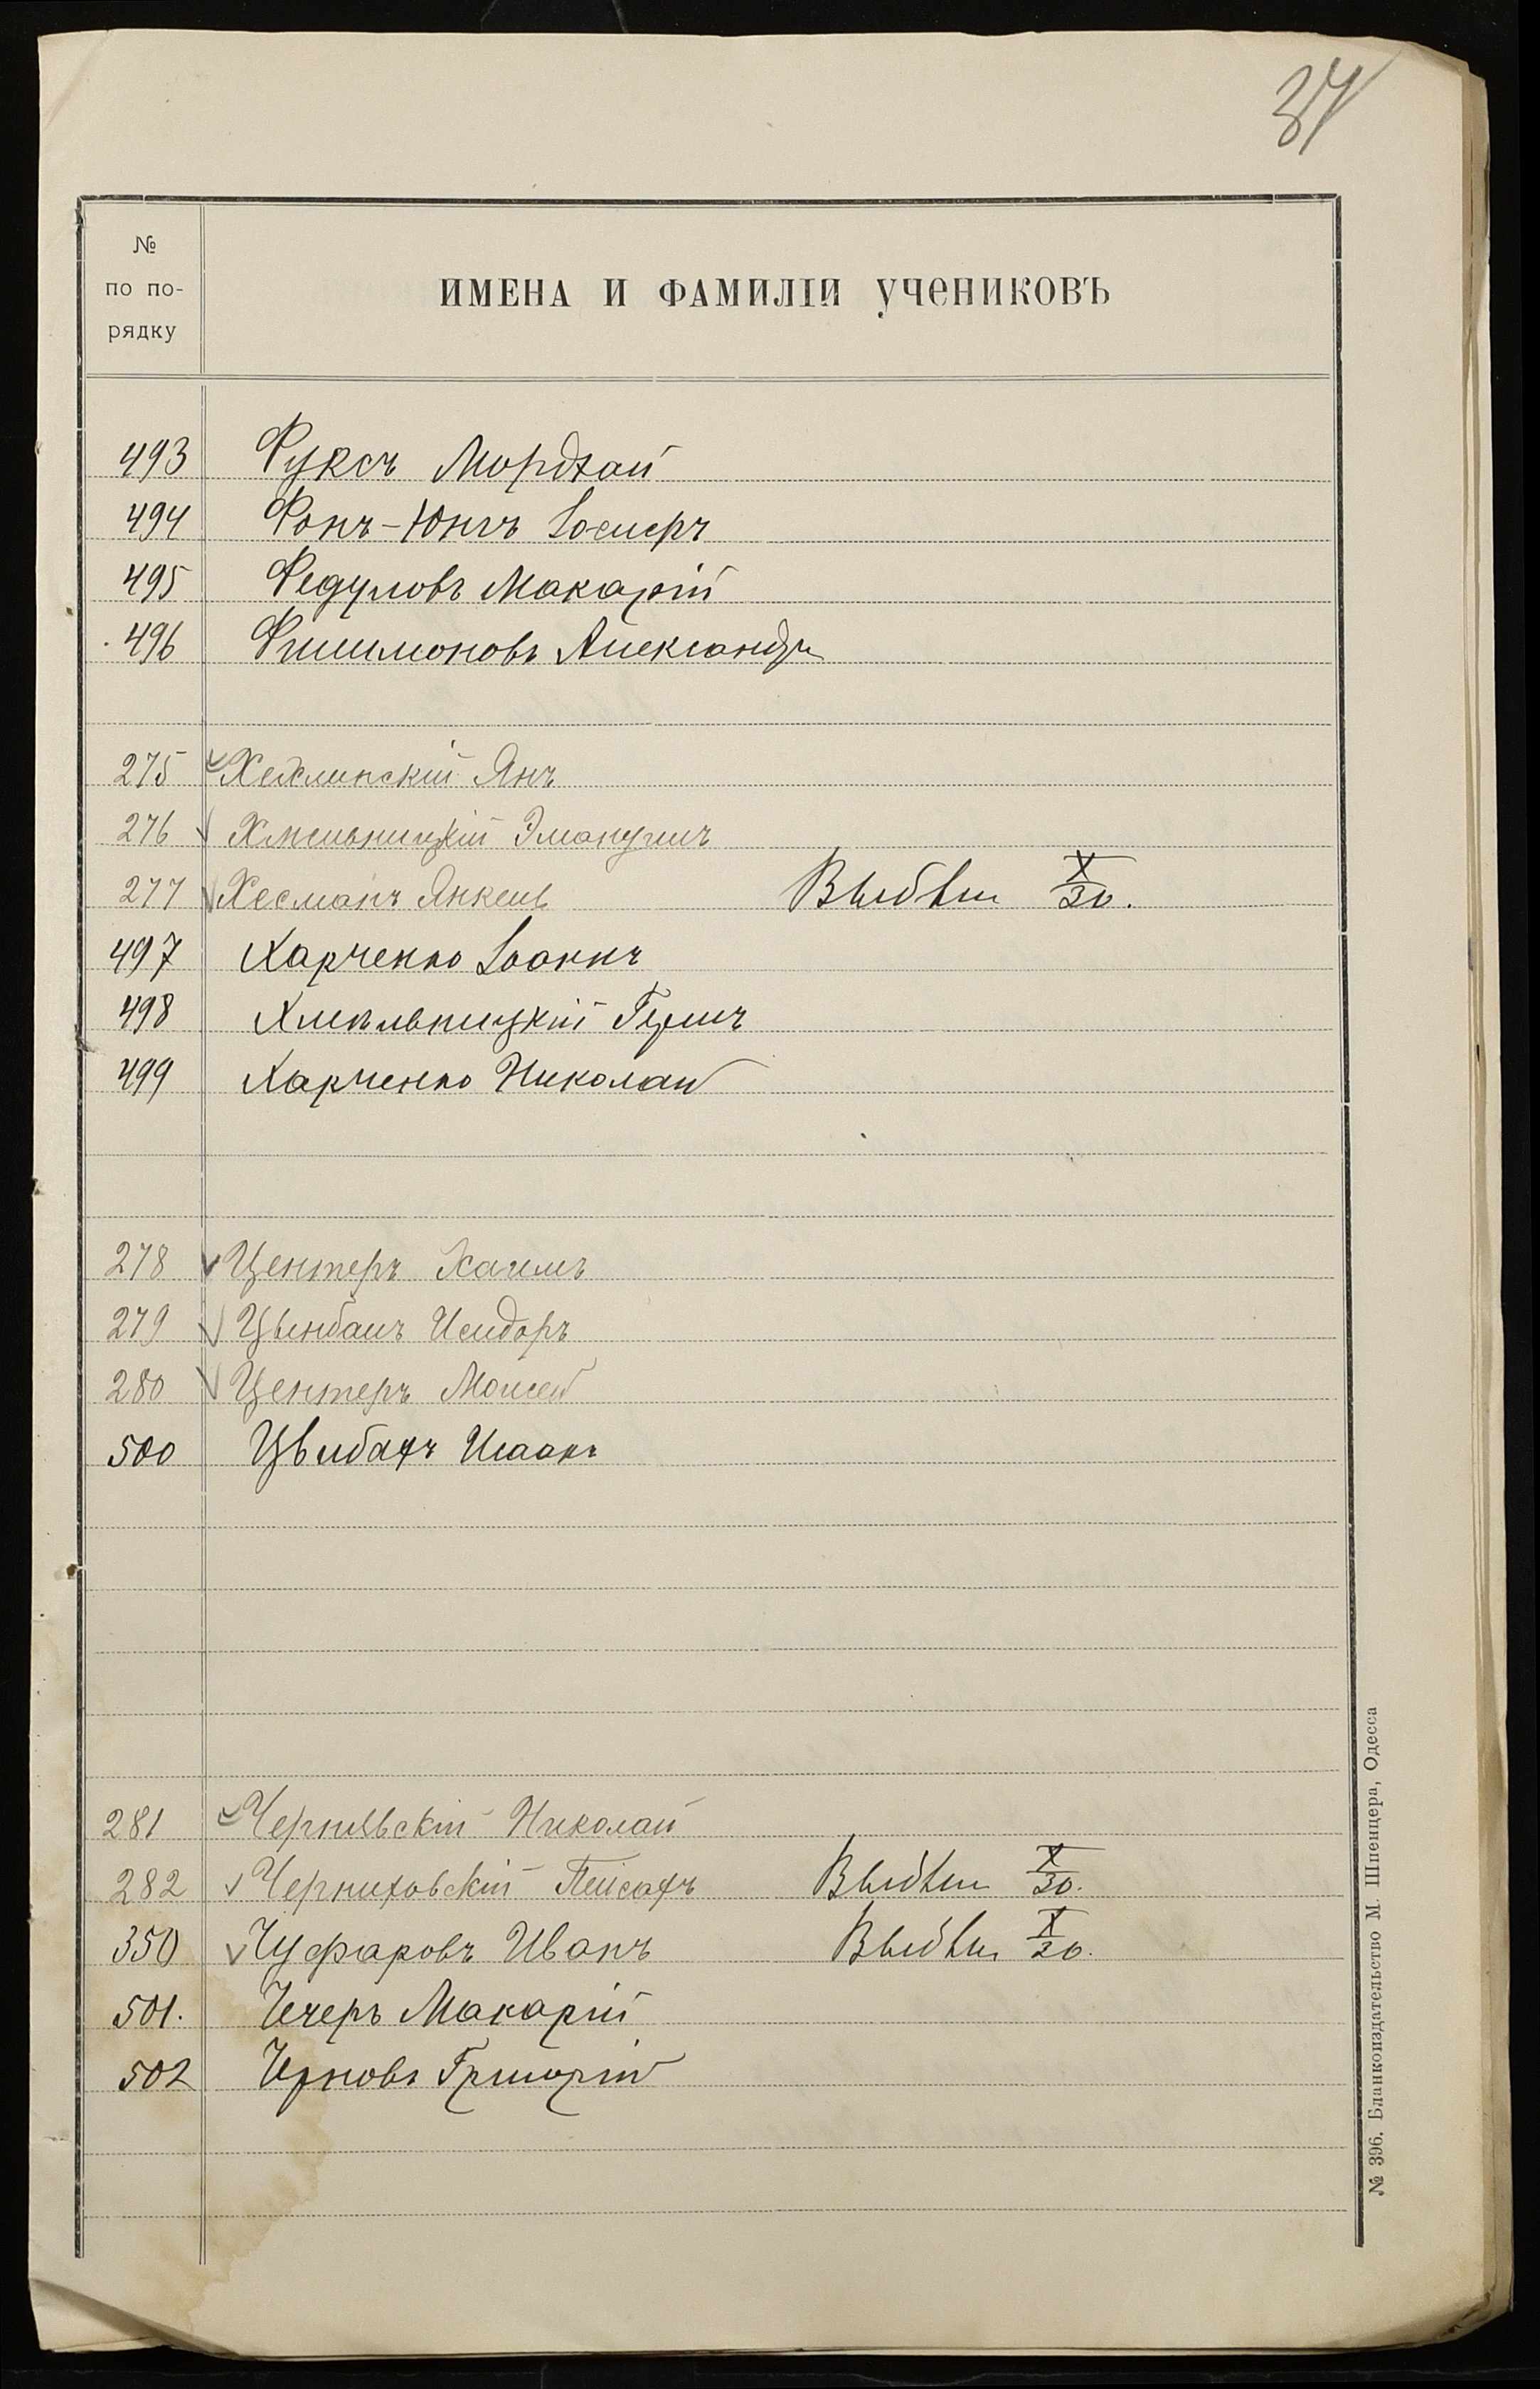 37
№
по по-
рядку
ИМЕНА И ФАМИЛІИ учениковъ
493 Фуксъ Мордхай
494 Фонъ-Юнгъ Іосифъ
495 Федуловъ Макарій
496 Филимоновъ Александръ
275 Хехлинскій Янъ
276 Хмельницкій Эмануилъ
277 Хесманъ Янкель Выбылъ X/30.
497 Харченко Іоаннъ
498 Хмѣльницкій Гершъ
499 Харченко Николай
278 Центеръ Хаимъ
279 Исидоръ
280 Центеръ Моисей
500 Цвибахъ Исаакъ
281 Чернявскій Николай
282 Черниховскій Пейсахъ Выбылъ X/30.
350 Чуфаровъ Иванъ Выбылъ X/20.
501. Чечеръ Макарій
502 Черновъ Григорій
№ 396. Бланкоиздательство М. Шпенцера, Одесса